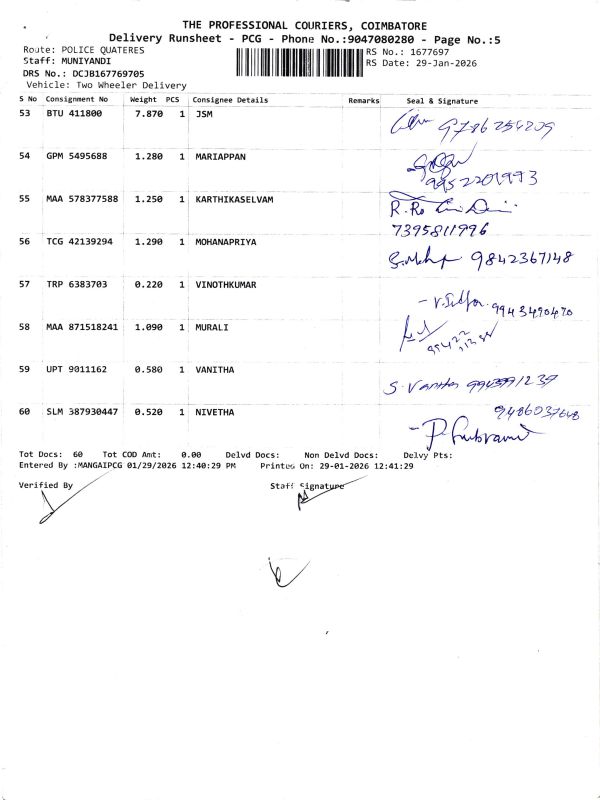 THE PROFESSIONAL COURIERS, COIMBATORE
Delivery Runsheet - PCG - Phone No.:9047080280 - Page No.:5
Route: POLICE QUATERES
RS No.: 1677697
Staff: MUNIYANDI
RS Date: 29-Jan-2026
DRS No.: DCJB167769705
Vehicle: Two Wheeler Delivery
S No Consignment No Weight PCS Consignee Details Remarks Seal & Signature
53 BTU 411800 7.870 1 JSM
9786254209
54 GPM 5495688 1.280 1 MARIAPPAN
9952201993
55 MAA 578377588 1.250 1 KARTHIKASELVAM
7395811996
56 TCG 42139294 1.290 1 MOHANAPRIYA
9842367148
57 TRP 6383703 0.220 1 VINOTHKUMAR
9943490470
58 MAA 871518241 1.090 1 MURALI
59 UPT 9011162 0.580 1 VANITHA
S. Vanitha
60 SLM 387930447 0.520 1 NIVETHA
Tot Docs: 60 Tot COD Amt: 0.00 Delvd Docs: Non Delvd Docs: Delvy Pts:
Entered By :MANGAIPCG 01/29/2026 12:40:29 PM Printed On: 29-01-2026 12:41:29
Verified By Staff Signature